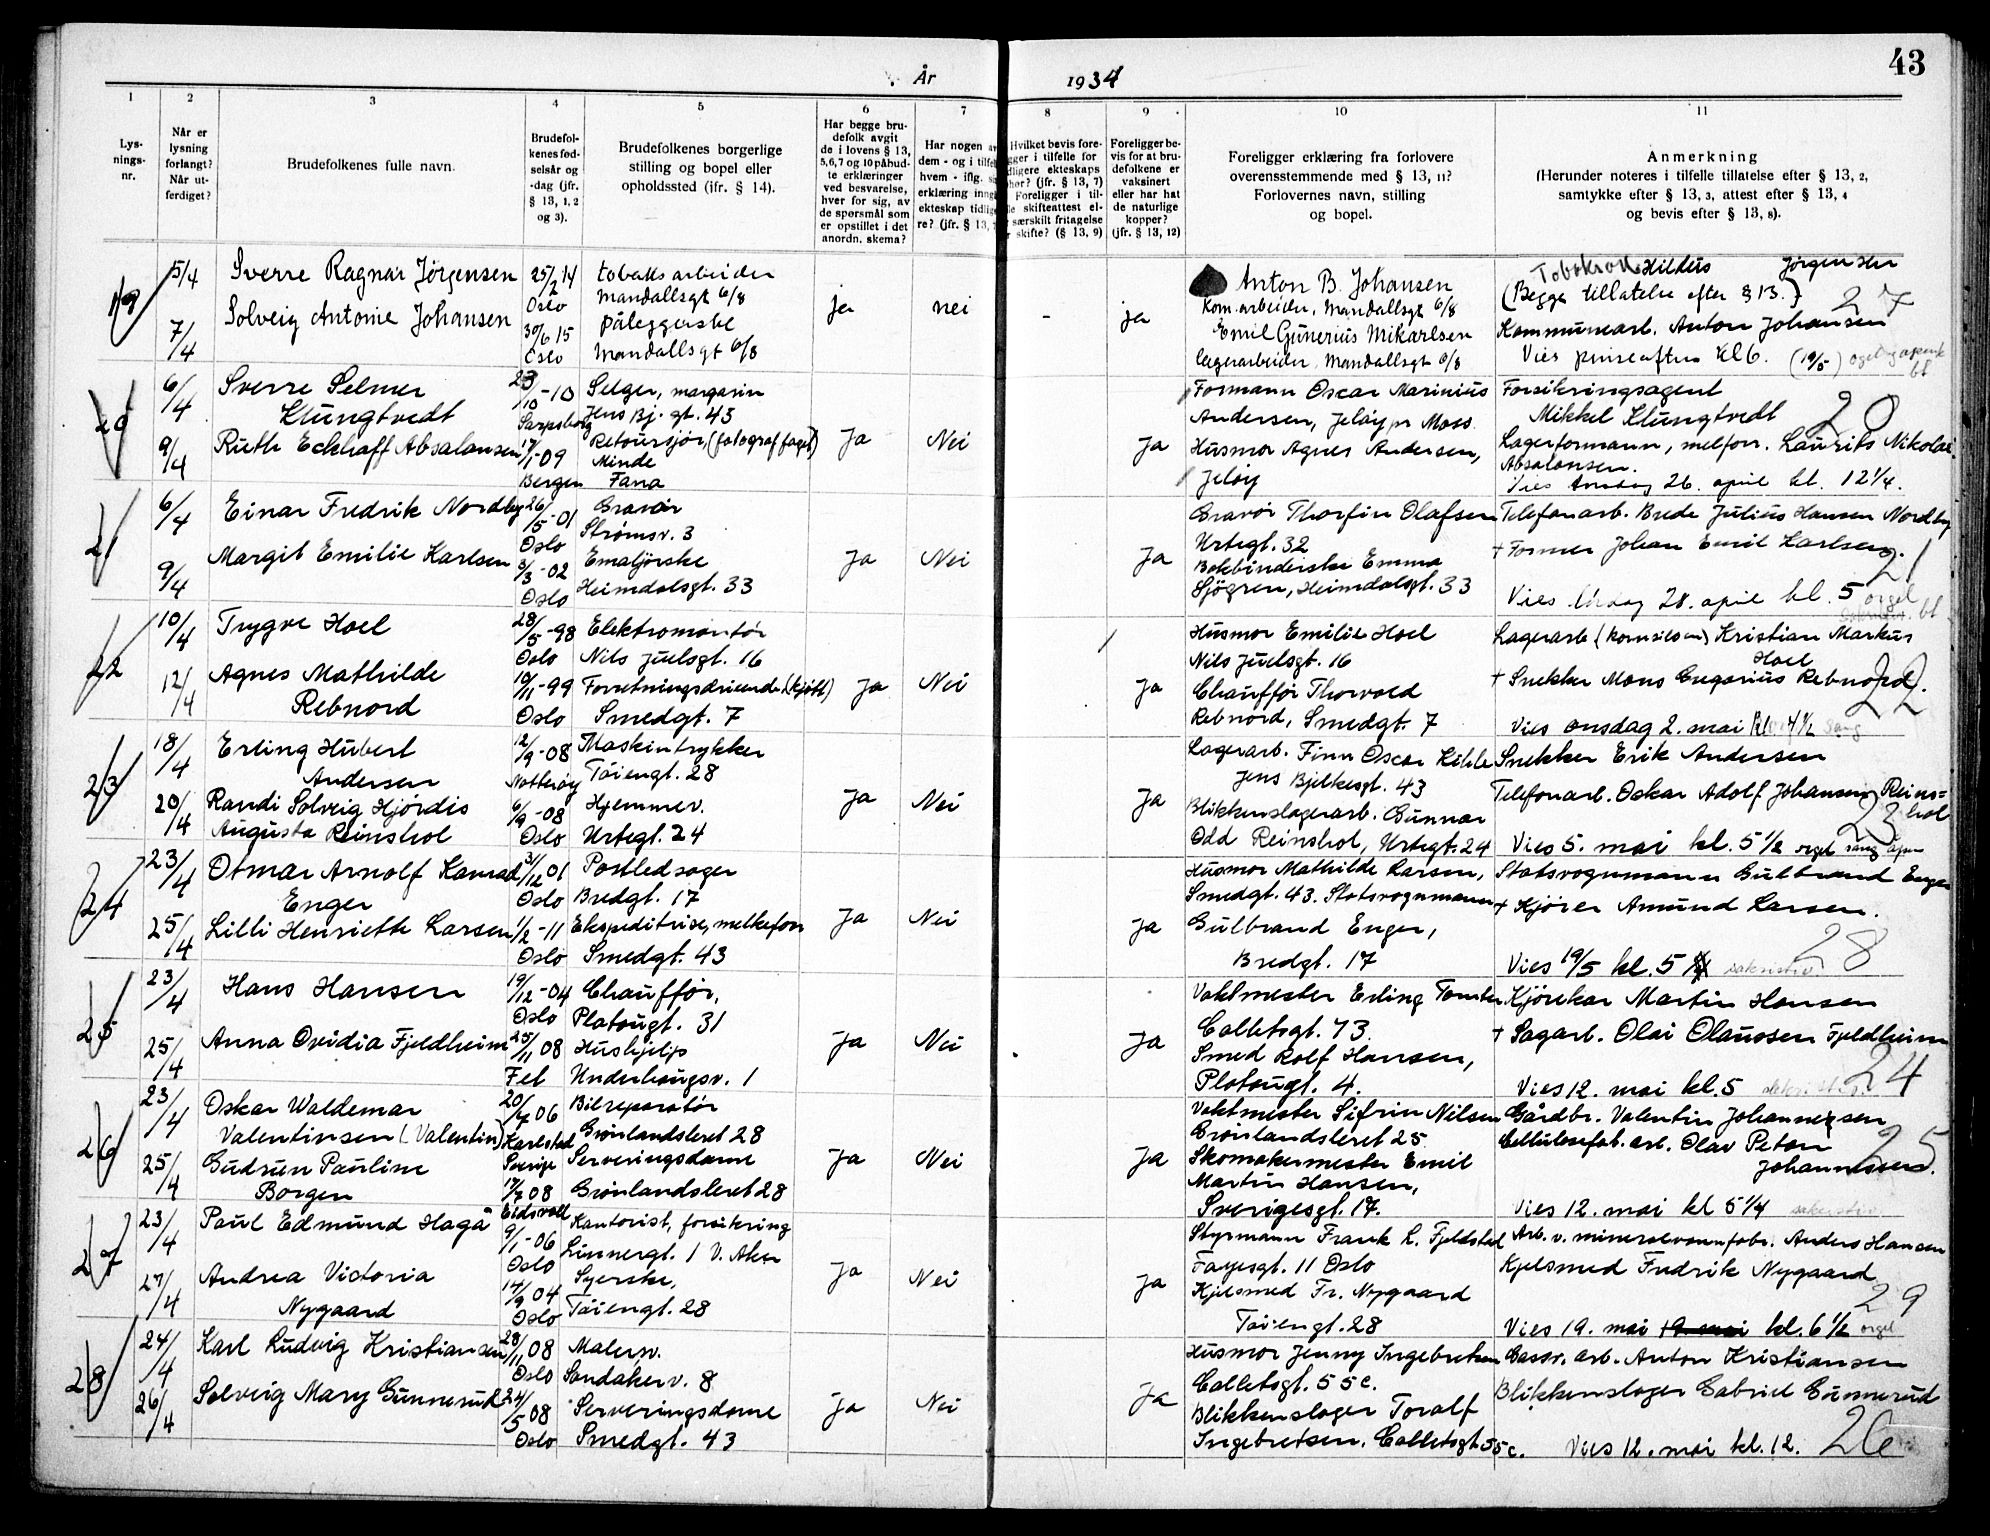 43
År 1934
1 2 3 4 5 6 7 8 9 10 11
Lys-
nings-
nr.
Når er
lysning
forlangt?
Når ut-
ferdiget?
Brudefolkenes fulle navn.
Brudefol-
kenes fød-
selsår og
-dag (jfr.
§ 13, 1, 2
og 3).
Brudefolkenes borgerlige
stilling og bopel eller
opholdssted (ifr. § 14).
Har begge bru-
defolk avgit
de i lovens § 13,
5,6,7 og 10 påbud-
te erklæringer
ved besvarelse,
hver for sig, av
de spørsmål som
er opstillet i det
anordn. skema?
Har nogen
dem - og i tilfel
hvem - iflg.
erklæring inng
ekteskap tidlig
re? (jfr. § 13,
Hvilket bevis fore-
gger i tilfelle for
dligere ekteskaps
hør? (jfr. § 13, 7)
Foreligger i til-
le skifteattest el-
særskilt fritagelse
skifte? (§ 13, 9)
Foreligger be-
vis for at bru-
defolkene er
vaksinert
eller har hat
de naturlige
kopper?
(jfr. § 13, 12)
Foreligger erklæring fra forlovere
overensstemmende med § 13, 11?
Forlovernes navn, stilling
og bopel.
Anmerkning
(Herunder noteres i tilfelle tillatelse efter § 13, 2,
samtykke efter § 13, 3, attest efter § 13, 4
og bevis efter § 13, 8).
19
5/4
7/4
Sverre Ragnar Jørgensen
Solveig Antonie Johansen
25/2 14
Oslo
30/6 15
Oslo
tobaksarbeider
Mandallsgt 6/8
påleggerske
Mandallsgt 6/8
ja nei - ja
Anton B. Johansen
Kom.arbeider, Mandallsgt 6/8
Emil Gunerius Mikarlsen
lagerarbeider, Mandallsgt 6/8
Jørgensen
(Begge tillatelse efter § 13.)
27
Kommunearb. Anton Johansen
Vies pinseaften kl 6. (19/5)
20
6/4
9/4
Sverre Selmer
Klungtvedt
Ruth Eckhoff Absalonsen
23/10-10
Sarpsborg
17/1-09
Bergen
Selger, margarin
Jens Bj. gt. 43
Retoursjør, (fotograffaget)
Minde
Fana
Ja Nei Ja
Formann Oscar Marinius
Andersen, Jeløy pr Moss.
Husmor Agnes Andersen,
Jeløy
Forsikringsagent
Mikkel Klungtvedt
20
Lagerformann, melforr. Laurits Nikolai
Absalonsen.
Vies torsdag 26. april kl. 12 1/4.
21
6/4
9/4
Einar Fredrik Nordby
Margit Emilie Karlsen
26/5-01
Oslo
3/3-02
Oslo
Gravør
Strømsv. 3
Emaljørske
Heimdalsgt. 33
Ja Nei Ja
Gravør Thorfin Olafsen
Urtegt. 32
Bokbinderske Emma
Sjögren, Heimdalsgt. 33
Telefonarb. Brede Julius Hansen Nordby
+ Former Johan Emil Karlsen.
21
Vies lørdag 28. april kl. 5 orgel
22
10/4
12/4
Trygve Hoel
Agnes Mathilde
Rebnord
28/5-98
Oslo
10/11-99
Oslo
Elektromontør
Nils Juelsgt. 16
Forretningsdrivende (kjøtt)
Smedgt. 7
Ja Nei Ja
Husmor Emilie Hoel
Nils Juelsgt. 16
Chauffør Thorvald
Rebnord, Smedgt. 7
Lagerarb (kornsiloen) Kristian Markus
Hoel
+ Snekker Mons Gregorius Rebnord.
22
Vies onsdag 2. mai kl 4 1/2 sang
23
18/4
20/4
Erling Hubert
Andersen
Randi Solveig Hjørdis
Augusta Reinshol
12/9-08
Nøtterøy
6/9-08
Oslo
Maskintrykker
Tøiengt. 28
Hjemmev.
Urtegt. 24
Ja Nei Ja
Lagerarb. Finn Oscar Kihle
Jens Bjelkesgt. 43
Blikkenslagerarb. Gunnar
Odd Reinshol, Urtegt. 24
Snekker Erik Andersen
Telefonarb. Oskar Adolf Johansen Reins-
hol
23
Vies 5. mai kl. 5 1/2 orgel sang
24
23/4
25/4
Otmar Arnolf Konrad
Enger
Lilli Henriette Larsen
31/12 01
Oslo
1/2-11
Oslo
Postledsager
Bredgt. 17
Ekspeditrise, melkeforr
Smedgt. 43
Ja Nei Ja
Husmor Mathilde Larsen,
Smedgt. 43. Statsvognmann
Gulbrand Enger,
Bredgt. 17
Statsvognmann Gulbrand Enger
+ Kjører Amund Larsen.
28
Vies 19/5 kl. 5
25
23/4
25/4
Hans Hansen
Anna Ovidia Fjeldheim
19/12-04
Oslo
25/11 08
Fet
Chauffør,
Platougt. 31
Hushjelp
Underhaugsv. 1
Ja Nei Ja
Vaktmester Erling Tomter
Calletsgt. 73.
Smed Rolf Hansen,
Platougt. 4.
Kjørekar Martin Hansen
+ Sagarb. Olai Olaussen Fjeldheim
24
Vies 12. mai kl. 5
26
23/4
25/4
Oskar Waldemar
Valentinsen (Valentin)
Gudrun Pauline
Borgen
20/7 06
Karlstad
Sverige
17/7 08
Eidsvoll
Bilreparatør
Grønlandsleret 28
Serveringsdame
Grønlandsleret 28
Ja Nei Ja
Vaktmester Sifrin Nilsen
Grønlandsleret 25.
Skomakermester Emil
Martin Hansen,
Sverigesgt. 17.
Gårdbr. Valentin Johannessen
Cellulosefab. arb. Olav Peton
Johannessen.
25
Vies 12. mai kl 5 1/4
27
23/4
27/4
Paul Edmund Hagå
Andrea Victoria
Nygaard
9/1-06
Oslo
14/9 04
Oslo
Kontorist, forsikring
Linnergt. 1 V. Aker
Syerske,
Tøiengt. 28
Ja Nei Ja
Styrmann Frank L. Fjeldstad
Fayesgt. 11 Oslo
Kjelsmed Fr. Nygaard
Tøiengt. 28
Arb. v. mineralvannfabr. Anders Hansen
Kjelsmed Fredrik Nygaard
29
Vies 19. mai 19 mai kl. 6 1/2 orgel
28
24/4
26/4
Karl Ludvig Kristiansen
Solveig Mary Gunnerud
28/11 08
Oslo
24/5 08
Oslo
Malersv.
Sandakerv. 8
Serveringsdame
Smedgt. 43
Ja Nei Ja
Husmor Jenny Ingebretsen
Calletsgt. 55 c.
Blikkenslager Toralf
Ingebretsen. Calletsgt 55 c.
Gassv. arb. Anton Kristiansen
Blikkenslager Gabriel Gunnerud
26
Vies 12. mai kl. 12.